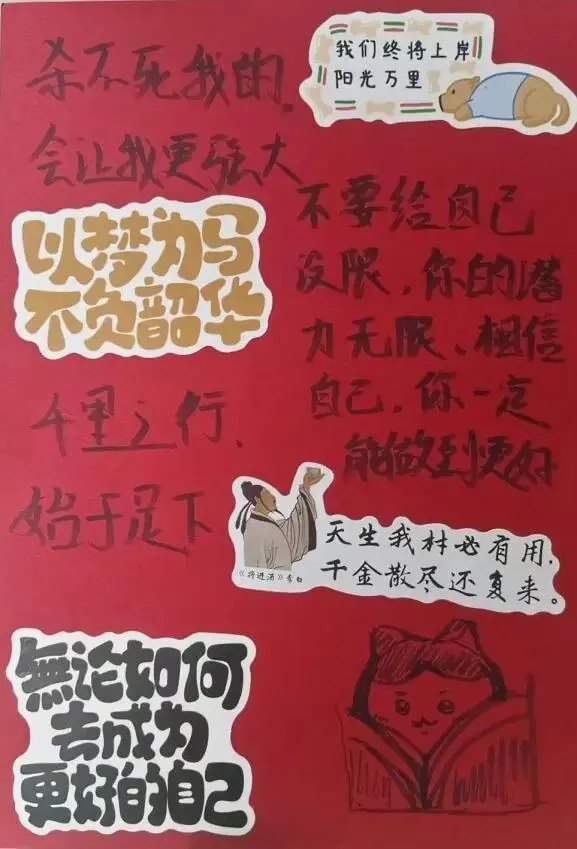 杀不死我的，
会让我更强大
我们终将上岸
阳光万里
以梦为马
不负韶华
不要给自己
设限，你的潜
力无限、相信
自己，你一定
能做到更好
千里之行、
始于足下
天生我材必有用，
千金散尽还复来。
《将进酒》李白
無论如何
去成为
更好的自己